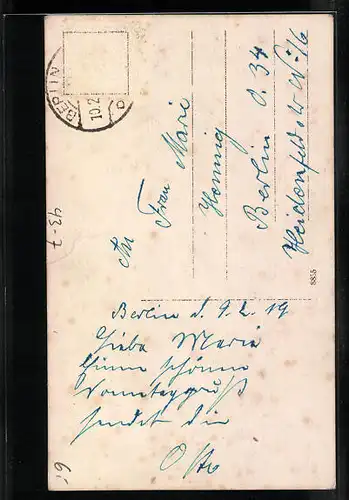 BERLIN
10.2
An
Frau Marie
Hennig
Berlin O. 34
Heidenfeldstr. No 16
8815
Berlin d. 9.2.19
Liebe Marie
Einen schönen
Sonntagsgruß
sendet dir
Otto
43-7
6.-